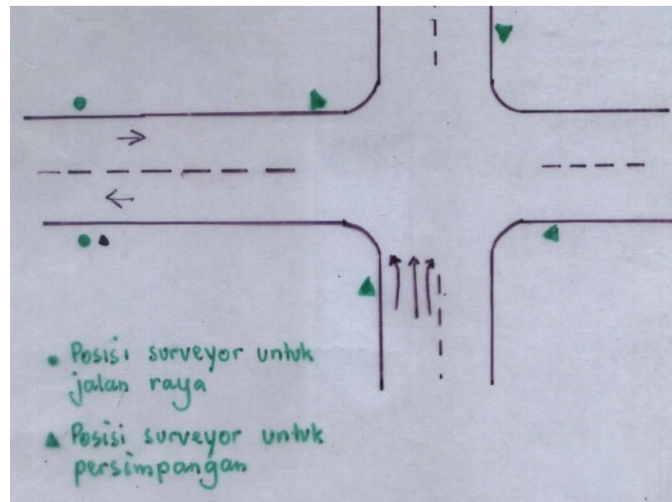 Posisi surveyor untuk
jalan raya
Posisi surveyor untuk
persimpangan